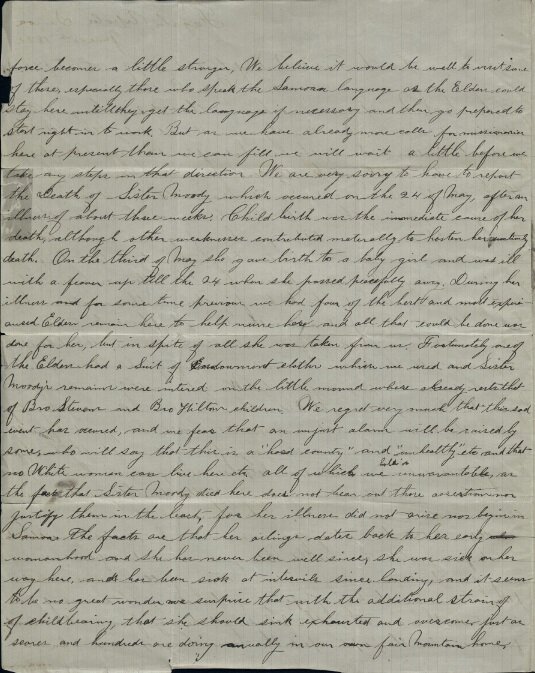 force becomes a little stronger, We believe it would be well to visit some
of these, especially those who speak the Samoan language as the Elders could
stay here untill they get the language if necessary and then go prepared to
start right in to work. But as we have already more calls for missionaries
here at present than we can fill, we will wait a little before we
take any steps in that direction. We are very sorry to have to report
the Death of Sister Moody, which occured on the 24 of May, after an
illness of about three weeks. Child birth was the immediate cause of her
death, although other weaknesses contributed materally to hasten her
death. On the third of May she gave birth to a baby girl and was ill
with a feaver up till the 24 when she passed peacefully away. During her
illness and for some time previous we had four of the best and most exper-
Elders remain here to help nurse her, and all that could be done was
done for her, but in spite of all she was taken from us. Fortunately one of
the Elders had a Suit of Endowment clothes which we used and Sister
Moody's remains were intered in the little mound where already rests that
of Bro. Stevons and Bro Hilton children. We regret very much that this sad
event has occured, and we fear that an unjust alarm will be raised by
some, who will say that this is a "hard country" and "unhealthy" etc and that
no White woman can live here etc, all of which we unwarantable, as
the fact that Sister Moody died here does not bear out those assertions nor
justify them in the least, for her illness did not arise nor begin in
Samoa. The facts are that her ailings dates back to her early
womanhood and she has never been well since, she was sick on her
way here, and has been sick at intervils since landing, and it seems
to be no great wonder surprise that with the additional strain of
of childbearing, that she should sink exhausted and overcome just as
scores and hundreds are doing anually in our own fair Mountain home,